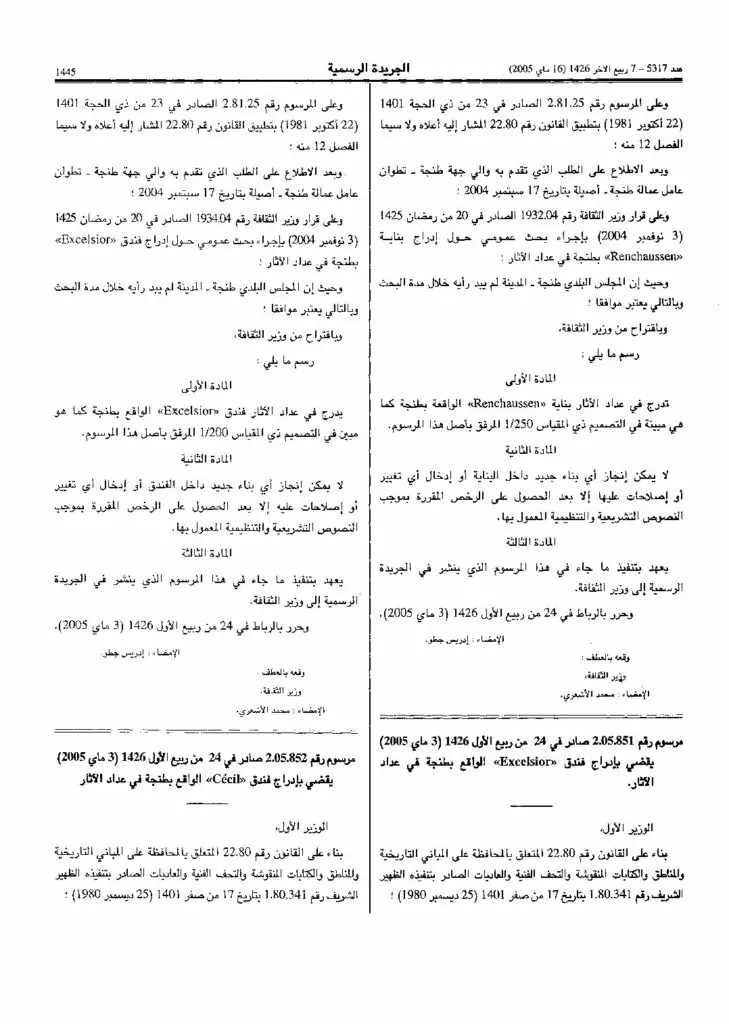 عدد 5317 – 7 ربيع الآخر 1426 (16 ماي 2005)
الجريدة الرسمية
1445
وعلى المرسوم رقم 2.81.25 الصادر في 23 من ذي الحجة 1401
(22 أكتوبر 1981) بتطبيق القانون رقم 22.80 المشار إليه أعلاه ولا سيما
الفصل 12 منه ؛
وبعد الاطلاع على الطلب الذي تقدم به والي جهة طنجة ـ تطوان
عامل عمالة طنجة ـ أصيلة بتاريخ 17 سبتمبر 2004 ؛
وعلى قرار وزير الثقافة رقم 1932.04 الصادر في 20 من رمضان 1425
(3 نوفمبر 2004) بإجراء بحث عمومي حول إدراج بناية
«Renchaussen» بطنجة في عداد الآثار ؛
وحيث إن المجلس البلدي طنجة ـ المدينة لم يبد رأيه خلال مدة البحث
وبالتالي يعتبر موافقا ؛
وباقتراح من وزير الثقافة،
رسم ما يلي :
المادة الأولى
تدرج في عداد الآثار بناية «Renchaussen» الواقعة بطنجة كما
هي مبينة في التصميم ذي المقياس 1/250 المرفق بأصل هذا المرسوم.
المادة الثانية
لا يمكن إنجاز أي بناء جديد داخل البناية أو إدخال أي تغيير
أو إصلاحات عليها إلا بعد الحصول على الرخص المقررة بموجب
النصوص التشريعية والتنظيمية المعمول بها.
المادة الثالثة
يعهد بتنفيذ ما جاء في هذا المرسوم الذي ينشر في الجريدة
الرسمية إلى وزير الثقافة.
وحرر بالرباط في 24 من ربيع الأول 1426 (3 ماي 2005).
الإمضاء : إدريس جطو.
وقعه بالعطف :
وزير الثقافة،
الإمضاء : محمد الأشعري.
مرسوم رقم 2.05.851 صادر في 24 من ربيع الأول 1426 (3 ماي 2005)
يقضي بإدراج فندق «Excelsior» الواقع بطنجة في عداد
الآثار.
الوزير الأول،
بناء على القانون رقم 22.80 المتعلق بالمحافظة على المباني التاريخية
والمناظر والكتابات المنقوشة والتحف الفنية والعاديات الصادر بتنفيذه الظهير
الشريف رقم 1.80.341 بتاريخ 17 من صفر 1401 (25 ديسمبر 1980) ؛
وعلى المرسوم رقم 2.81.25 الصادر في 23 من ذي الحجة 1401
(22 أكتوبر 1981) بتطبيق القانون رقم 22.80 المشار إليه أعلاه ولا سيما
الفصل 12 منه ؛
وبعد الاطلاع على الطلب الذي تقدم به والي جهة طنجة ـ تطوان
عامل عمالة طنجة ـ أصيلة بتاريخ 17 سبتمبر 2004 ؛
وعلى قرار وزير الثقافة رقم 1934.04 الصادر في 20 من رمضان 1425
(3 نوفمبر 2004) بإجراء بحث عمومي حول إدراج فندق «Excelsior»
بطنجة في عداد الآثار ؛
وحيث إن المجلس البلدي طنجة ـ المدينة لم يبد رأيه خلال مدة البحث
وبالتالي يعتبر موافقا ؛
وباقتراح من وزير الثقافة،
رسم ما يلي :
المادة الأولى
يدرج في عداد الآثار فندق «Excelsior» الواقع بطنجة كما هو
مبين في التصميم ذي المقياس 1/200 المرفق بأصل هذا المرسوم.
المادة الثانية
لا يمكن إنجاز أي بناء جديد داخل الفندق أو إدخال أي تغيير
أو إصلاحات عليه إلا بعد الحصول على الرخص المقررة بموجب
النصوص التشريعية والتنظيمية المعمول بها.
المادة الثالثة
يعهد بتنفيذ ما جاء في هذا المرسوم الذي ينشر في الجريدة
الرسمية إلى وزير الثقافة.
وحرر بالرباط في 24 من ربيع الأول 1426 (3 ماي 2005).
الإمضاء : إدريس جطو.
وقعه بالعطف :
وزير الثقافة،
الإمضاء : محمد الأشعري.
مرسوم رقم 2.05.852 صادر في 24 من ربيع الأول 1426 (3 ماي 2005)
يقضي بإدراج فندق «Cécil» الواقع بطنجة في عداد الآثار
الوزير الأول،
بناء على القانون رقم 22.80 المتعلق بالمحافظة على المباني التاريخية
والمناطق والكتابات المنقوشة والتحف الفنية والعاديات الصادر بتنفيذه الظهير
الشريف رقم 1.80.341 بتاريخ 17 من صفر 1401 (25 ديسمبر 1980) ؛